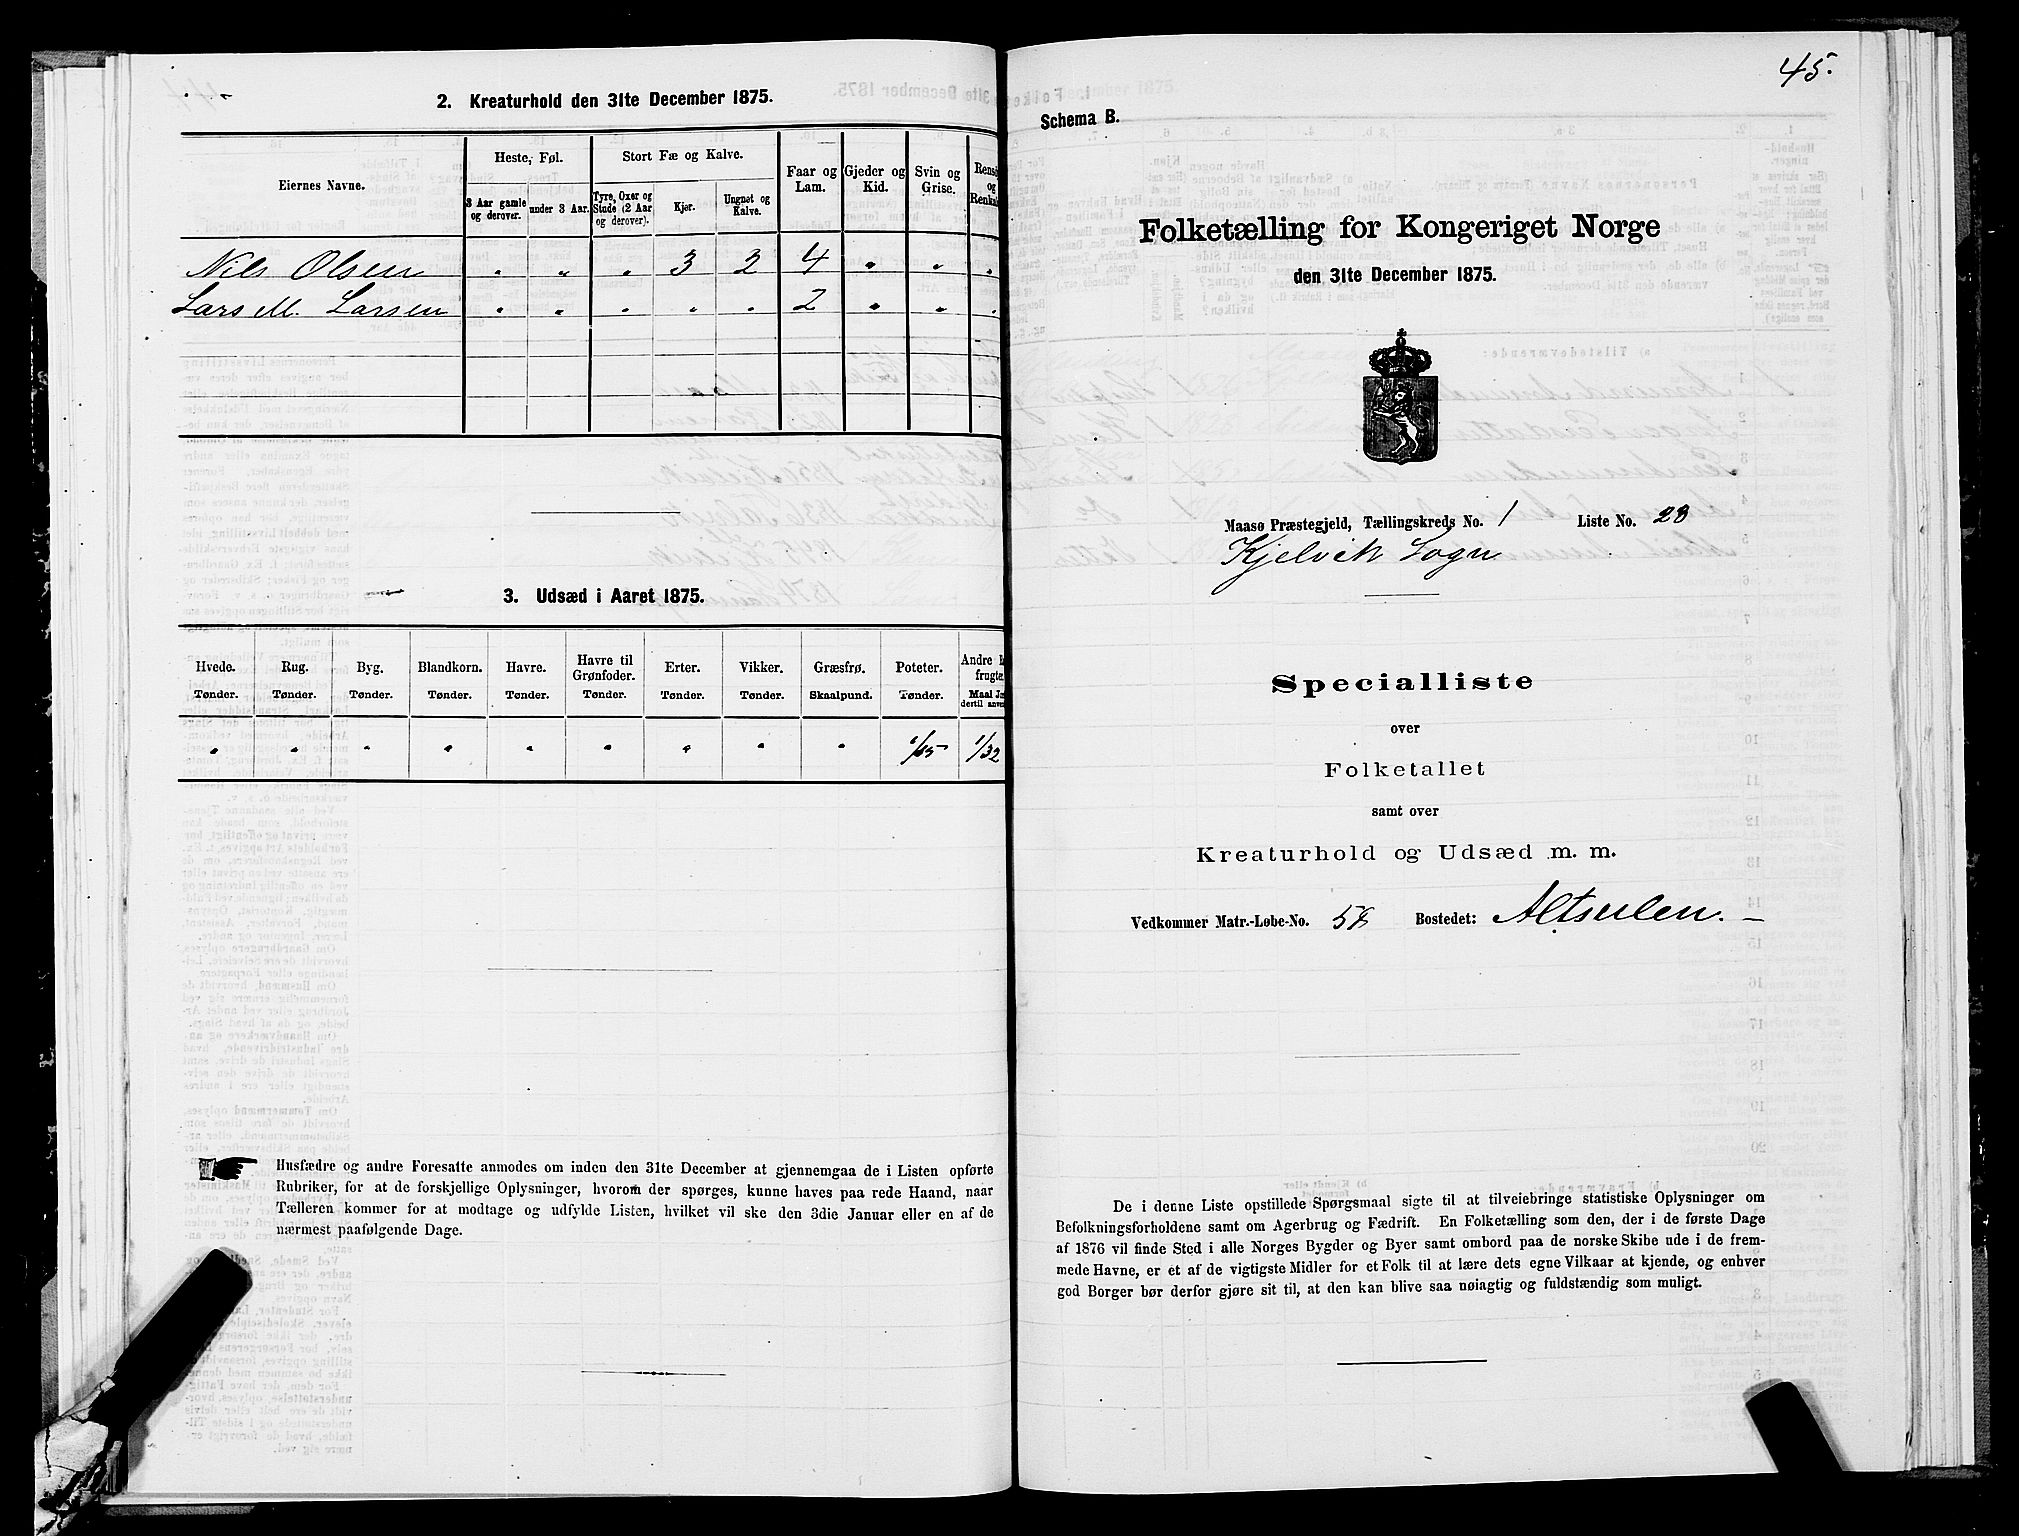 2. Kreaturhold den 31te December 1875.
Eiernes Navne.
Heste, Føl.
Stort Fæ og Kalve.
Faar og Lam.
Gjeder og Kid.
Svin og Grise.
3 Aar gamle og derover.
under 3 Aar.
Tyre, Oxer og Stude (2 Aar og derover).
Kjør.
Ungnøt og Kalve.
Nils Olsen " " " 3 2 4 " " "
Lars M. Larsen " " " " " 2 " " "
3. Udsæd i Aaret 1875.
Hvede. Rug. Byg. Blandkorn. Havre. Havre til Grønfoder. Erter. Vikker. Græsfrø. Poteter. Andre
Tønder. Tønder. Tønder. Tønder. Tønder. Tønder. Tønder. Tønder. Skaalpund. Tønder. Maal
" " " " " " " " " 1/15 1/32
Husfædre og andre Foresatte anmodes om inden den 31te December at gjennemgaa de i Listen opførte
Rubriker, for at de forskjellige Oplysninger, hvorom der spørges, kunne haves paa rede Haand, naar
Tælleren kommer for at modtage og udfylde Listen, hvilket vil ske den 3die Januar eller en af de
nærmest paafølgende Dage.
45.
Schema B.
Folketælling for Kongeriget Norge
den 31te December 1875.
Maasø Præstegjeld, Tællingskreds No. 1 Liste No. 28
Kjelvik Sogn
Specialliste
over
Folketallet
samt over
Kreaturhold og Udsæd m. m.
Vedkommer Matr.-Løbe-No. Bostedet: Altsulen.
De i denne Liste opstillede Spørgsmaal sigte til at tilveiebringe statistiske Oplysninger om
Befolkningsforholdene samt om Agerbrug og Fædrift. En Folketælling som den, der i de første Dage
af 1876 vil finde Sted i alle Norges Bygder og Byer samt ombord paa de norske Skibe ude i de frem-
mede Havne, er et af de vigtigste Midler for et Folk til at lære dets egne Vilkaar at kjende, og enhver
god Borger bør derfor gjøre sit til, at den kan blive saa nøiagtig og fuldstændig som muligt.